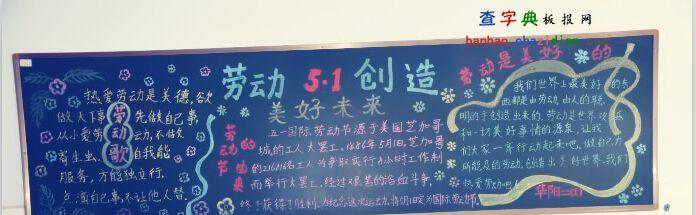 查字典板报网
劳动 5·1 创造
美好未来
劳动歌
热爱劳动是美德,欲
做大下事 先做自己事,
从小爱劳动 动,不做
寄生虫, 自我能
服务,方能独立行,
点滴自己事,不让他人替,
劳动的节由来
五一国际劳动节源于美国芝加哥
城的工人大罢工,1886年5月1日,芝加哥
的216816名工人为争取实行八小时工作制
而举行大罢工,经过艰苦的浴血斗争,
终于获得了胜利,为纪念这次运动,将
劳动是美好的
我们世界上最美好的东
西都是由劳动、由人的聪
明的手创造出来的,劳动是世界
和一切美好事情的源泉,让我
们大家一齐行动起来吧,做自己力
所能及的劳动,创造出美好世界,我们
热爱劳动吧!
华阳二(2)